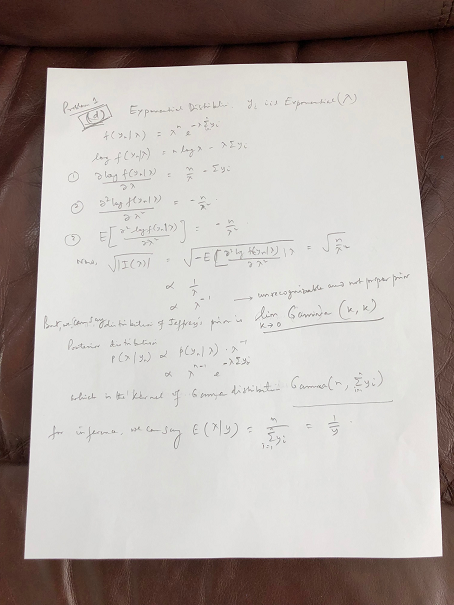 Problem 1
(d) Exponential Distribution. yᵢ iid Exponential(λ)
f(yₙ|λ) = λⁿ e^{-λΣyᵢ}
log f(yₙ|λ) = n log λ - λΣyᵢ
① ∂log f(yₙ|λ)/∂λ = n/λ - Σyᵢ
② ∂²log f(yₙ|λ)/∂λ² = -n/λ².
③ E[∂²log f(yₙ|λ)/∂λ²] = -n/λ².
Now, √|I(λ)| = √(-E[∂²log f(yₙ|λ)/∂λ²]|λ) = √(n/λ²)
∝ 1/λ
∝ λ⁻¹ → unrecognizable and not proper prior
But, we can say distribution of Jeffrey's prior is lim_{k→0} Gamma (k, k)
Posterior distribution
P(λ|yₙ) ∝ P(yₙ|λ) · λ⁻¹
∝ λⁿ⁻¹ e^{-λΣyᵢ}
which is the kernel of Gamma distribution Gamma(n, Σⁿᵢ₌₁ yᵢ)
for inference, we can say E(λ|y) = n/Σⁿᵢ₌₁ yᵢ = 1/ȳ.